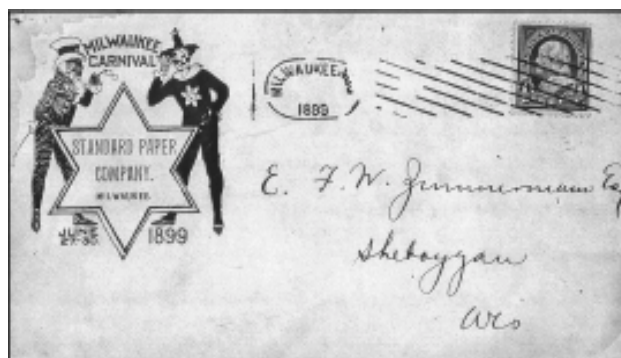 MILWAUKEE
CARNIVAL
STANDARD PAPER
COMPANY.
MILWAUKEE.
JUNE
27-30.
1899
MILWAUKEE,
1899
E. F. W. Zimmermann Esq
Sheboygan
Wis